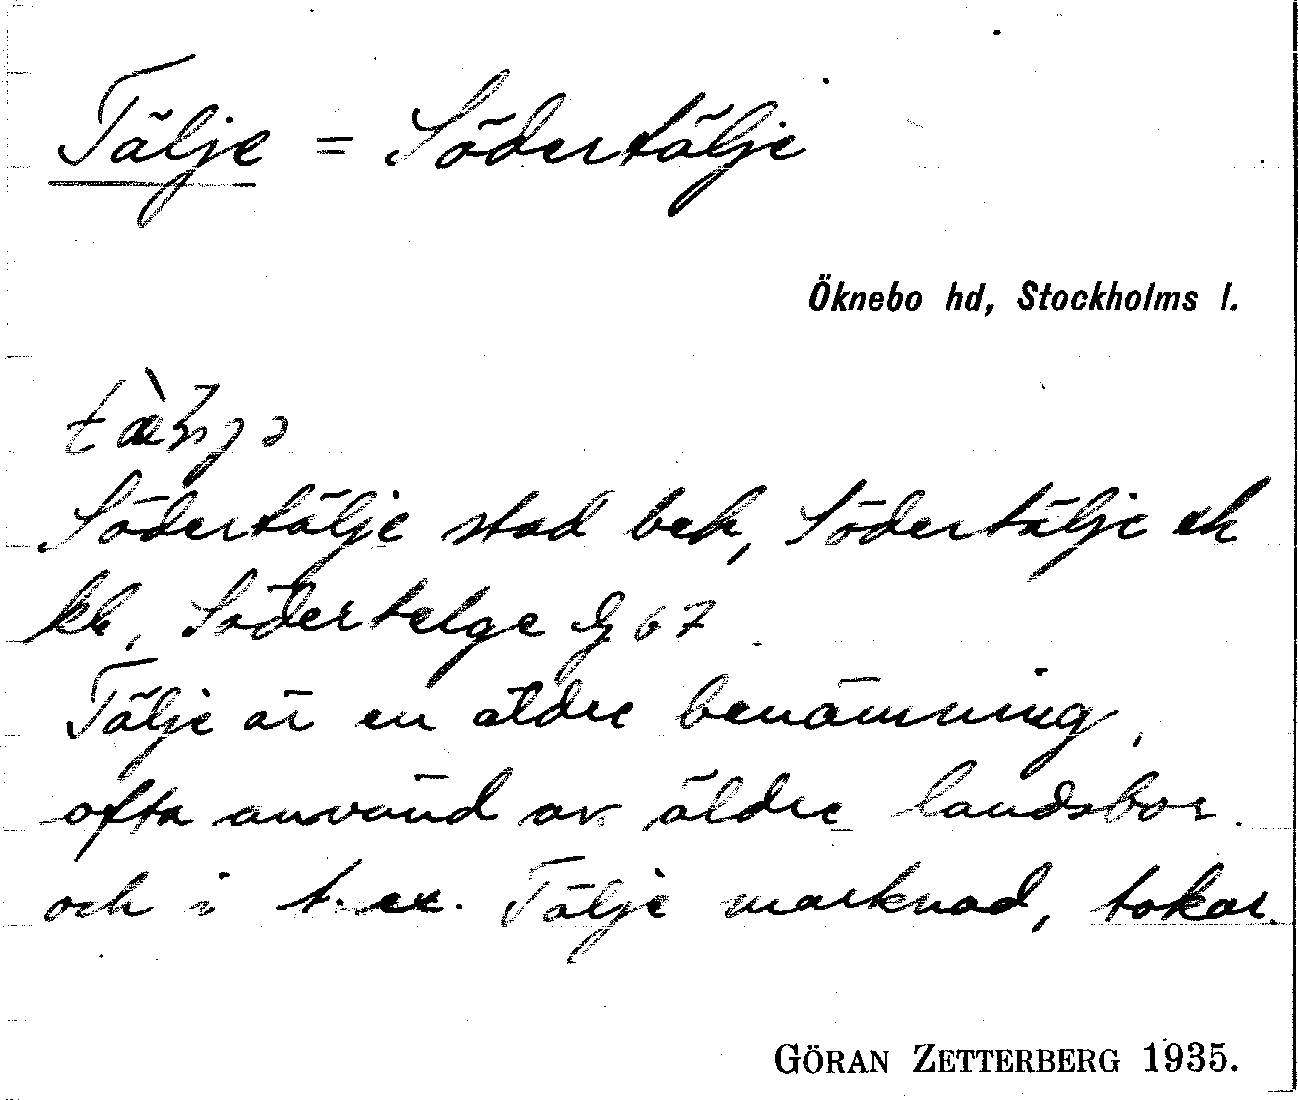 Tälje = Södertälje
Öknebo hd, Stockholms l.
Södertälje stad bek, Södertälje ek
kb, Södertelge Gs 67
Tälje är en äldre benämning,
ofta använd av äldre landsbor
och i t. ex. Tälje marknad, tokar.
GÖRAN ZETTERBERG 1935.